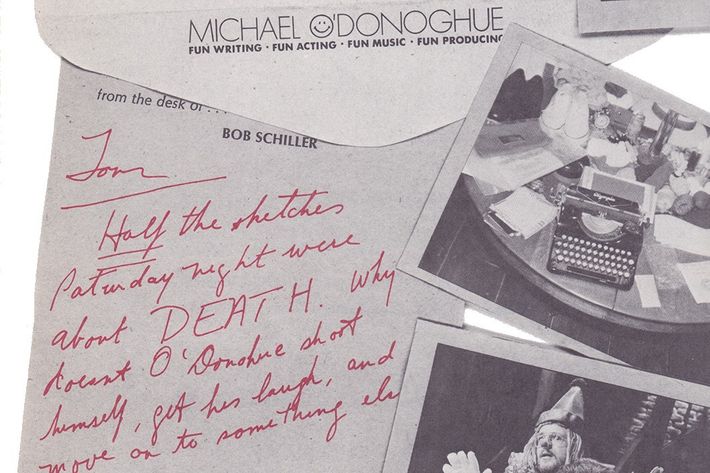 MICHAEL O'DONOGHUE
FUN WRITING · FUN ACTING · FUN MUSIC · FUN PRODUCING
from the desk of . . .
BOB SCHILLER
Tom
Half the sketches
Saturday night were
about DEATH. Why
doesnt O'Donohue shoot
himself, get his laugh, and
move on to something els